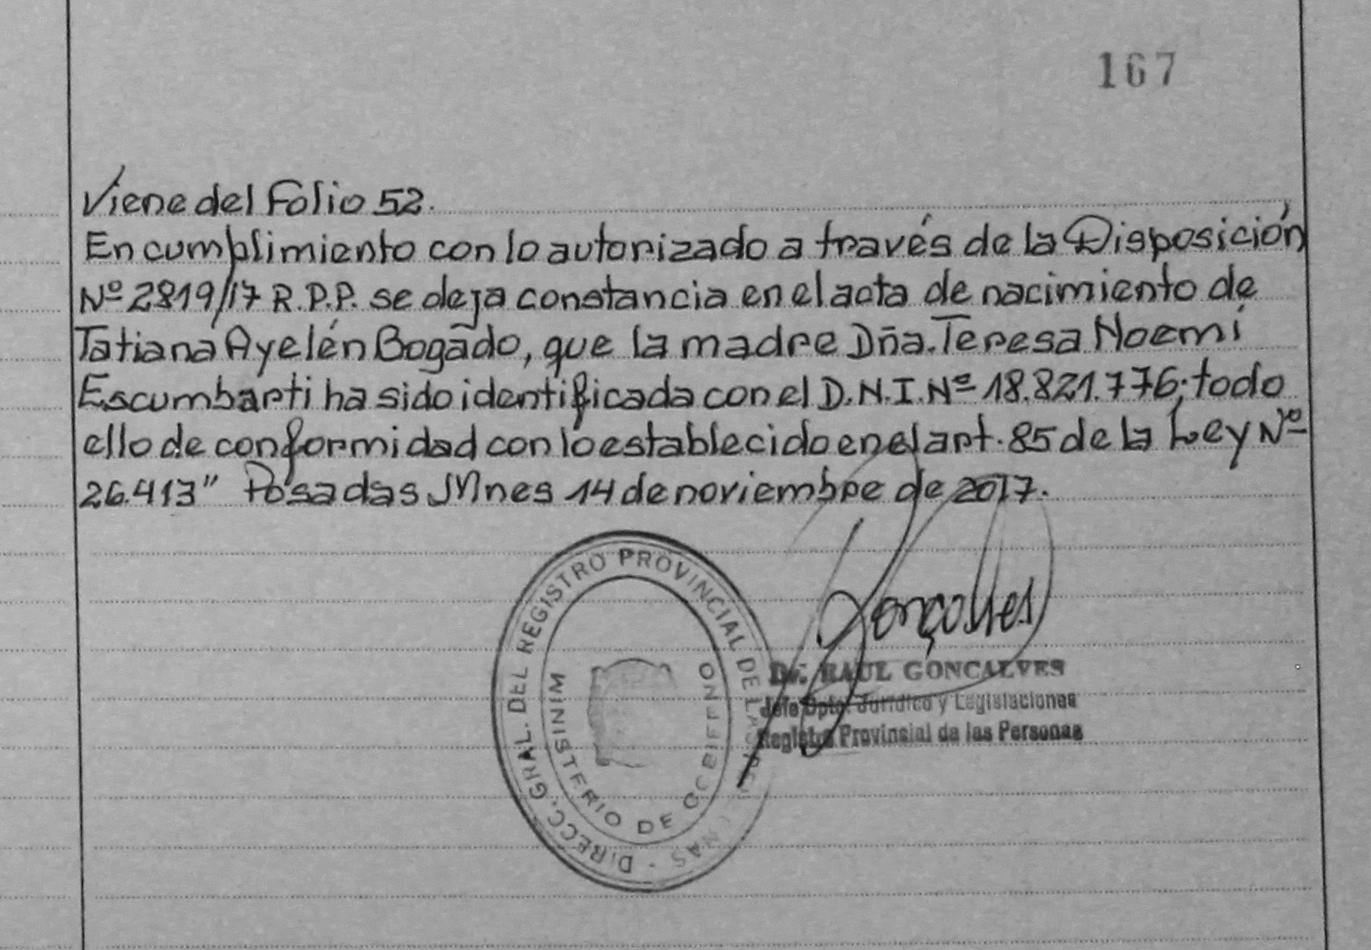 167
Viene del Folio 52.
En cumplimiento con lo autorizado a través de la Disposición
Nº 2819/17 R.P.P. se deja constancia en el acta de nacimiento de
Tatiana Ayelén Bogado, que la madre Dña. Teresa Noemí
Escumbarti ha sido identificada con el D.N.I. Nº 18.821.776; todo
ello de conformidad con lo establecido en el art. 85 de la Ley Nº
26.413" Posadas Mnes 14 de noviembre de 2017.
DIRECC. GRAL. DEL REGISTRO PROVINCIAL DE LAS
MINISTERIO DE GOBIERNO
Gonçalves
Dr. RAUL GONCALVES
Jefe Dpto. Jurídico y Legislaciones
Registro Provincial de las Personas